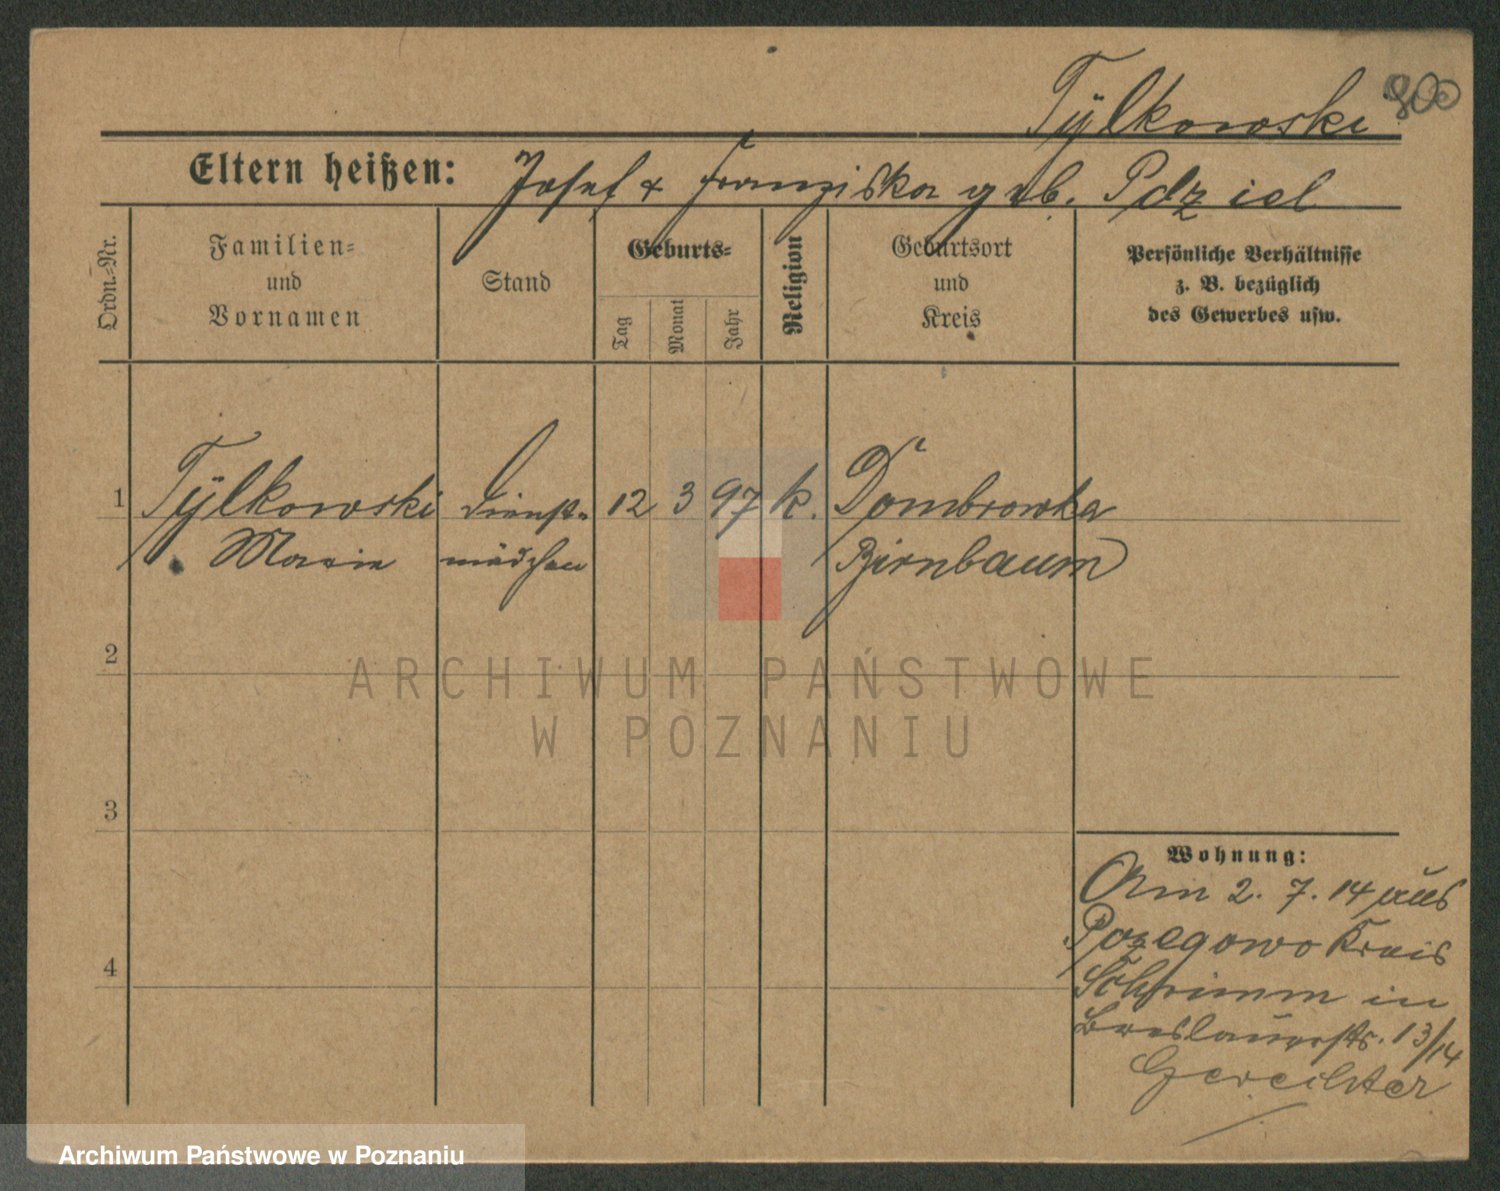 Tÿlkowski
300
Eltern heißen: Josef & Franziska geb. Pdziel
Ordn.-Nr.
Familien-
und
Vornamen
Stand
Geburts-
Tag
Monat
Jahr
Religion
Geburtsort
und
Kreis
Persönliche Verhältnisse
z. B. bezüglich
des Gewerbes usw.
1 Tÿlkowski Dienst- 12 3 97 k. Dombrowka
Marie mädchen Birnbaum
2
3
4
Wohnung:
Am 2. 7. 14 aus
Pozegowo Kreis
Schrimm in
Breslauerstr. 13/14
ARCHIWUM PAŃSTWOWE
W POZNANIU
Archiwum Państwowe w Poznaniu